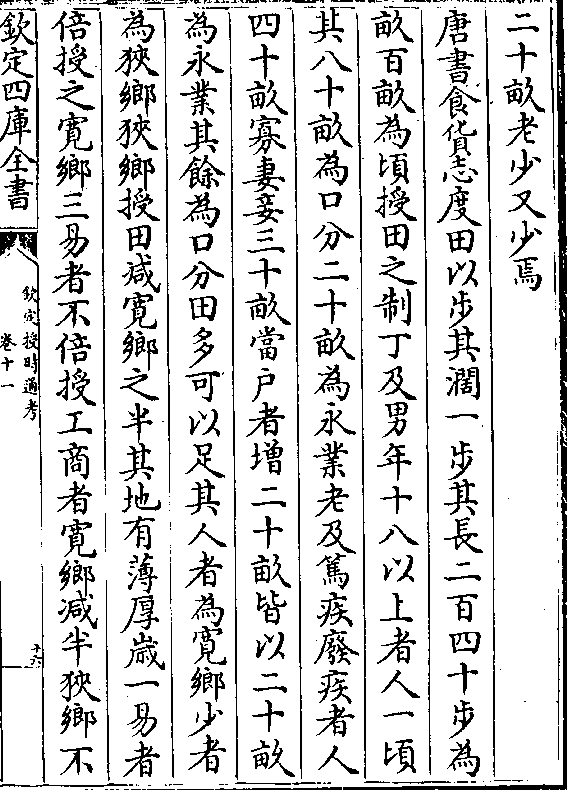 二十畝老少又少焉
唐書食貨志度田以步其濶一步其長二百四十步為
畝百畝為頃授田之制丁及男年十八以上者人一頃
其八十畝為口分二十畝為永業老及篤疾廢疾者人
四十畝寡妻妾三十畝當户者增二十畝皆以二十畝
為永業其餘為口分田多可以足其人者為寛鄉少者
為狹鄉狹鄉授田減寛鄉之半其地有薄厚歲一易者
倍授之寛鄉三易者不倍授工商者寛鄉減半狹鄉不
欽定四庫全書
欽定授時通考
卷十一
十六